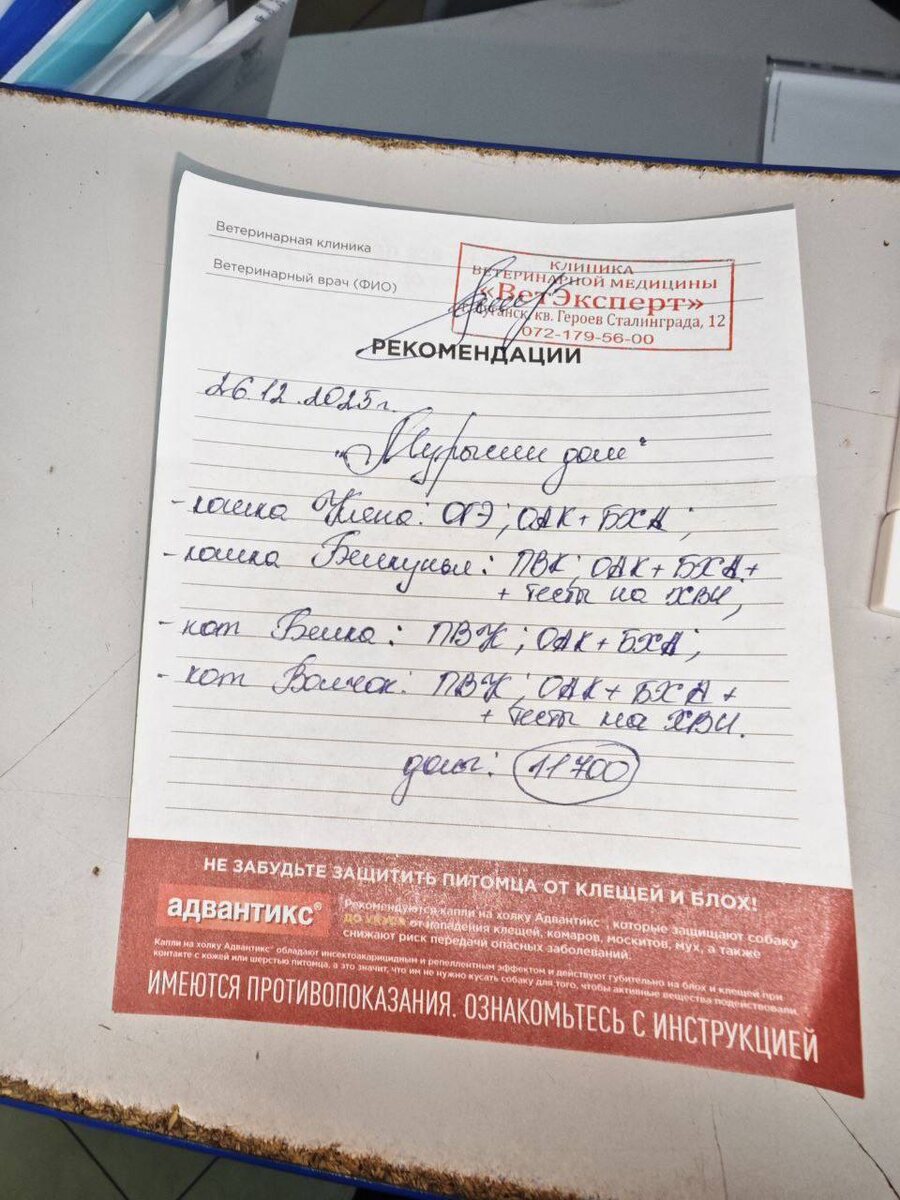 Ветеринарная клиника
Ветеринарный врач (ФИО)
КЛИНИКА
ВЕТЕРИНАРНОЙ МЕДИЦИНЫ
«ВетЭксперт»
кв. Героев Сталинграда, 12
072-179-56-00
РЕКОМЕНДАЦИИ
26.12.2025г.
- кошка : ОГЭ; ОАК + БХА;
- кошка : ПВК; ОАК + БХА +
+ тесты на ХВИ,
- кот Белка: ПВК; ОАК + БХА;
- кот Волчок: ПВК; ОАК + БХА +
+ тесты на ХВИ.
11700
НЕ ЗАБУДЬТЕ ЗАЩИТИТЬ ПИТОМЦА ОТ КЛЕЩЕЙ И БЛОХ!
адвантикс®
Рекомендуются капли на холку Адвантикс®, которые защищают собаку
от нападения клещей, комаров, москитов, мух, а также
снижают риск передачи опасных заболеваний.
Капли на холку Адвантикс® обладают инсектоакарицидным и репеллентным эффектом и действуют губительно на блох и клещей при
контакте с кожей или шерстью питомца, а это значит, что им не нужно кусать собаку для того, чтобы активные вещества подействовали.
ИМЕЮТСЯ ПРОТИВОПОКАЗАНИЯ. ОЗНАКОМЬТЕСЬ С ИНСТРУКЦИЕЙ